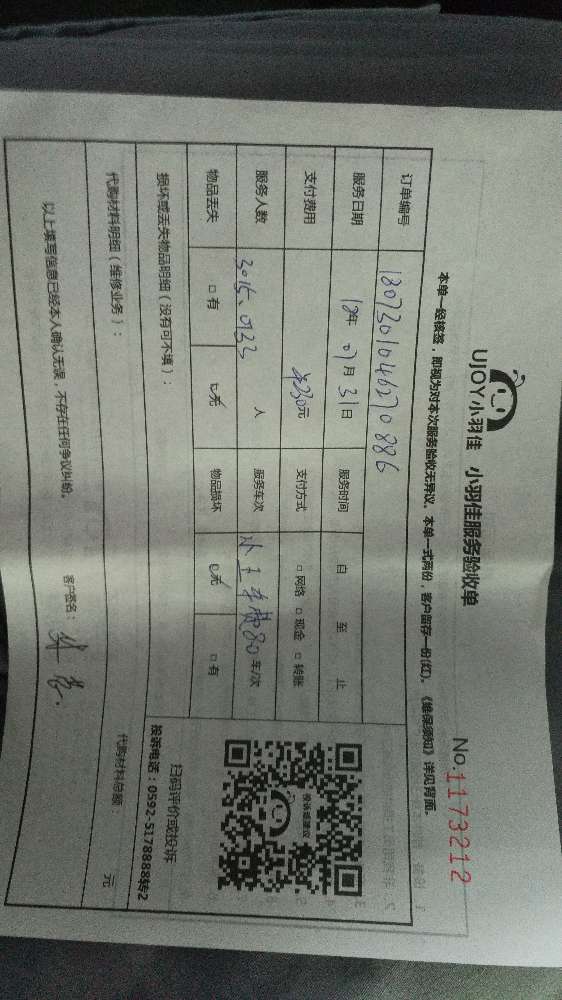 UJOY小羽佳 小羽佳服务验收单
No.1173212
本单一经核签，即视为对本次服务验收无异议。本单一式两份，客户留存一份(红)。《维保须知》详见背面。
订单编号 1807301046270886
服务日期 18年07月31日 服务时间 自 至 止
支付费用 230元 支付方式 □网络 □现金 □转账
服务人数 3015、0133 人 服务车次 80车/次
物品丢失 □有 □无 物品损坏 □无 □有
扫码评价或投诉
投诉电话：0592-5178888转2
损坏或丢失物品明细（没有可不填）：
代购材料明细（维修业务）： 代购材料总额： 元
以上填写信息已经本人确认无误，不存在任何争议纠纷。
客户签名：